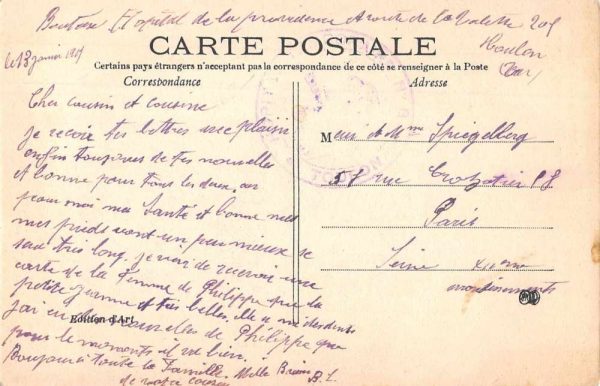 Hopital de la providence route de la Valette
Toulon
(Var)
le 13 janvier
CARTE POSTALE
Certains pays étrangers n'acceptant pas la correspondance de ce côté se renseigner à la Poste
Correspondance
Adresse
Cher cousin et cousine
je recoir tes lettres avec plaisir
enfin toujours de tes nouvelles
et bonne pour tous les deux, car
pour moi ma santé et bonne mes
mes pieds vont un peu mieux se
sera très long, je viens de recevoir une
carte de la femme de Philippe que la
petite jeanne et très belles. elle a
j'ai eu de nouvelles de Philippe que
pour le moments il va bien.
Bonjour à toute la Famille. Mille Baisers
de votre cousin B. L.
Meur et Mme Spiegelberg
58 rue Crozatier 58
Paris
Seine XIIème
arrondissements
Edition d'Art
TOULON